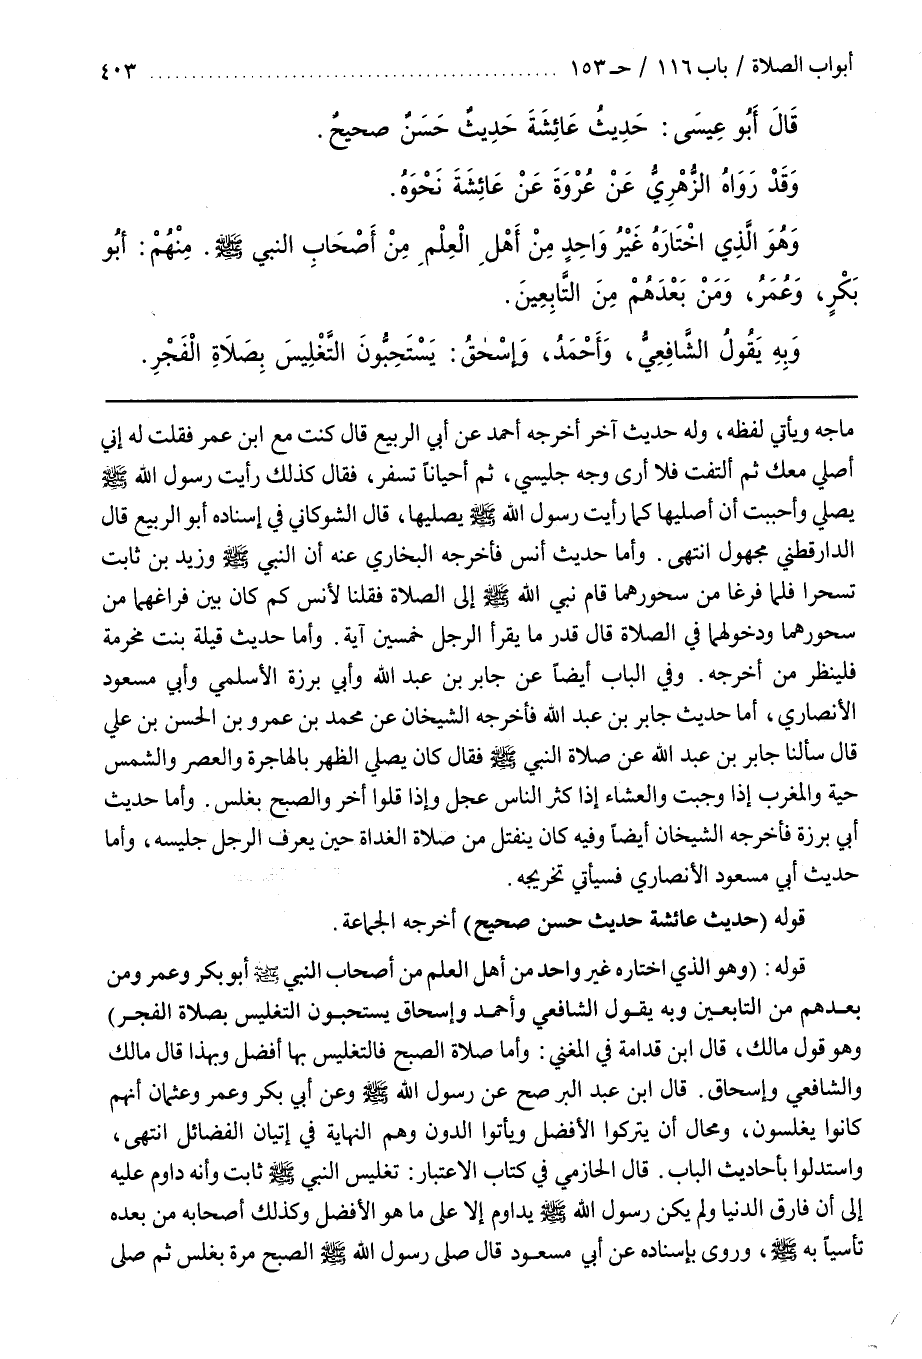 أبواب الصلاة / باب ١١٦ / حـ ١٥٣ ................................................ ٤٠٣
قَالَ أَبُو عِيسَى: حَدِيثُ عَائِشَةَ حَدِيثٌ حَسَنٌ صحيحٌ.
وَقَدْ رَوَاهُ الزُّهْرِيُّ عَنْ عُرْوَةَ عَنْ عَائِشَةَ نَحْوَهُ.
وَهُوَ الَّذِي اخْتَارَهُ غَيْرُ وَاحِدٍ مِنْ أَهْلِ الْعِلْمِ مِنْ أَصْحَابِ النبي ﷺ. مِنْهُمْ: أبُو
بَكْرٍ، وَعُمَرُ، وَمَنْ بَعْدَهُمْ مِنَ التَّابِعِينَ.
وَبِهِ يَقُولُ الشَّافِعِيُّ، وَأَحْمَدُ، وَإِسْحٰقُ: يَسْتَحِبُّونَ التَّغْلِيسَ بِصَلَاةِ الْفَجْرِ.
ماجه ويأتي لفظه، وله حديث آخر أخرجه أحمد عن أبي الربيع قال كنت مع ابن عمر فقلت له إني
أصلي معك ثم ألتفت فلا أرى وجه جليسي، ثم أحياناً تسفر، فقال كذلك رأيت رسول الله ﷺ
يصلي وأحببت أن أصليها كما رأيت رسول الله ﷺ يصليها، قال الشوكاني في إسناده أبو الربيع قال
الدارقطني مجهول انتهى. وأما حديث أنس فأخرجه البخاري عنه أن النبي ﷺ وزيد بن ثابت
تسحرا فلما فرغا من سحورهما قام نبي الله ﷺ إلى الصلاة فقلنا لأنس كم كان بين فراغهما من
سحورهما ودخولهما في الصلاة قال قدر ما يقرأ الرجل خمسين آية. وأما حديث قيلة بنت مخرمة
فلينظر من أخرجه. وفي الباب أيضاً عن جابر بن عبد الله وأبي برزة الأسلمي وأبي مسعود
الأنصاري، أما حديث جابر بن عبد الله فأخرجه الشيخان عن محمد بن عمرو بن الحسن بن علي
قال سألنا جابر بن عبد الله عن صلاة النبي ﷺ فقال كان يصلي الظهر بالهاجرة والعصر والشمس
حية والمغرب إذا وجبت والعشاء إذا كثر الناس عجل وإذا قلوا أخر والصبح بغلس. وأما حديث
أبي برزة فأخرجه الشيخان أيضاً وفيه كان ينفتل من صلاة الغداة حين يعرف الرجل جليسه، وأما
حديث أبي مسعود الأنصاري فسيأتي تخريجه.
قوله (حديث عائشة حديث حسن صحيح) أخرجه الجماعة.
قوله: (وهو الذي اختاره غير واحد من أهل العلم من أصحاب النبي ﷺ أبو بكر وعمر ومن
بعدهم من التابعين وبه يقول الشافعي وأحمد وإسحاق يستحبون التغليس بصلاة الفجر)
وهو قول مالك، قال ابن قدامة في المغني: وأما صلاة الصبح فالتغليس بها أفضل وبهذا قال مالك
والشافعي وإسحاق. قال ابن عبد البر صح عن رسول الله ﷺ وعن أبي بكر وعمر وعثمان أنهم
كانوا يغلسون، ومحال أن يتركوا الأفضل ويأتوا الدون وهم النهاية في إتيان الفضائل انتهى،
واستدلوا بأحاديث الباب. قال الحازمي في كتاب الاعتبار: تغليس النبي ﷺ ثابت وأنه داوم عليه
إلى أن فارق الدنيا ولم يكن رسول الله ﷺ يداوم إلا على ما هو الأفضل وكذلك أصحابه من بعده
تأسياً به ﷺ، وروى بإسناده عن أبي مسعود قال صلى رسول الله ﷺ الصبح مرة بغلس ثم صلى